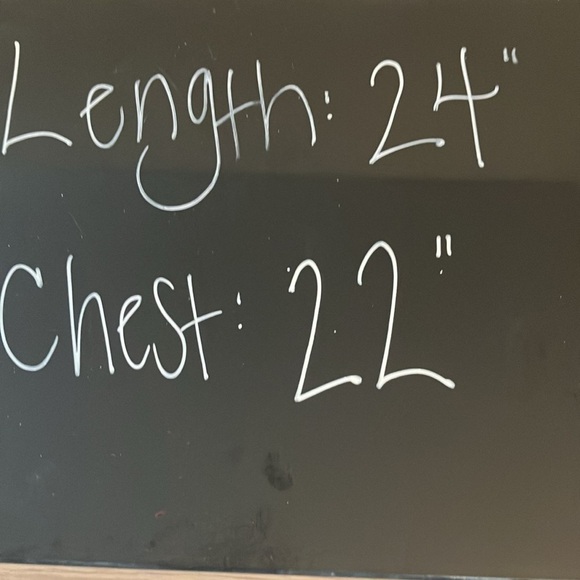 Length: 24"
Chest: 22"